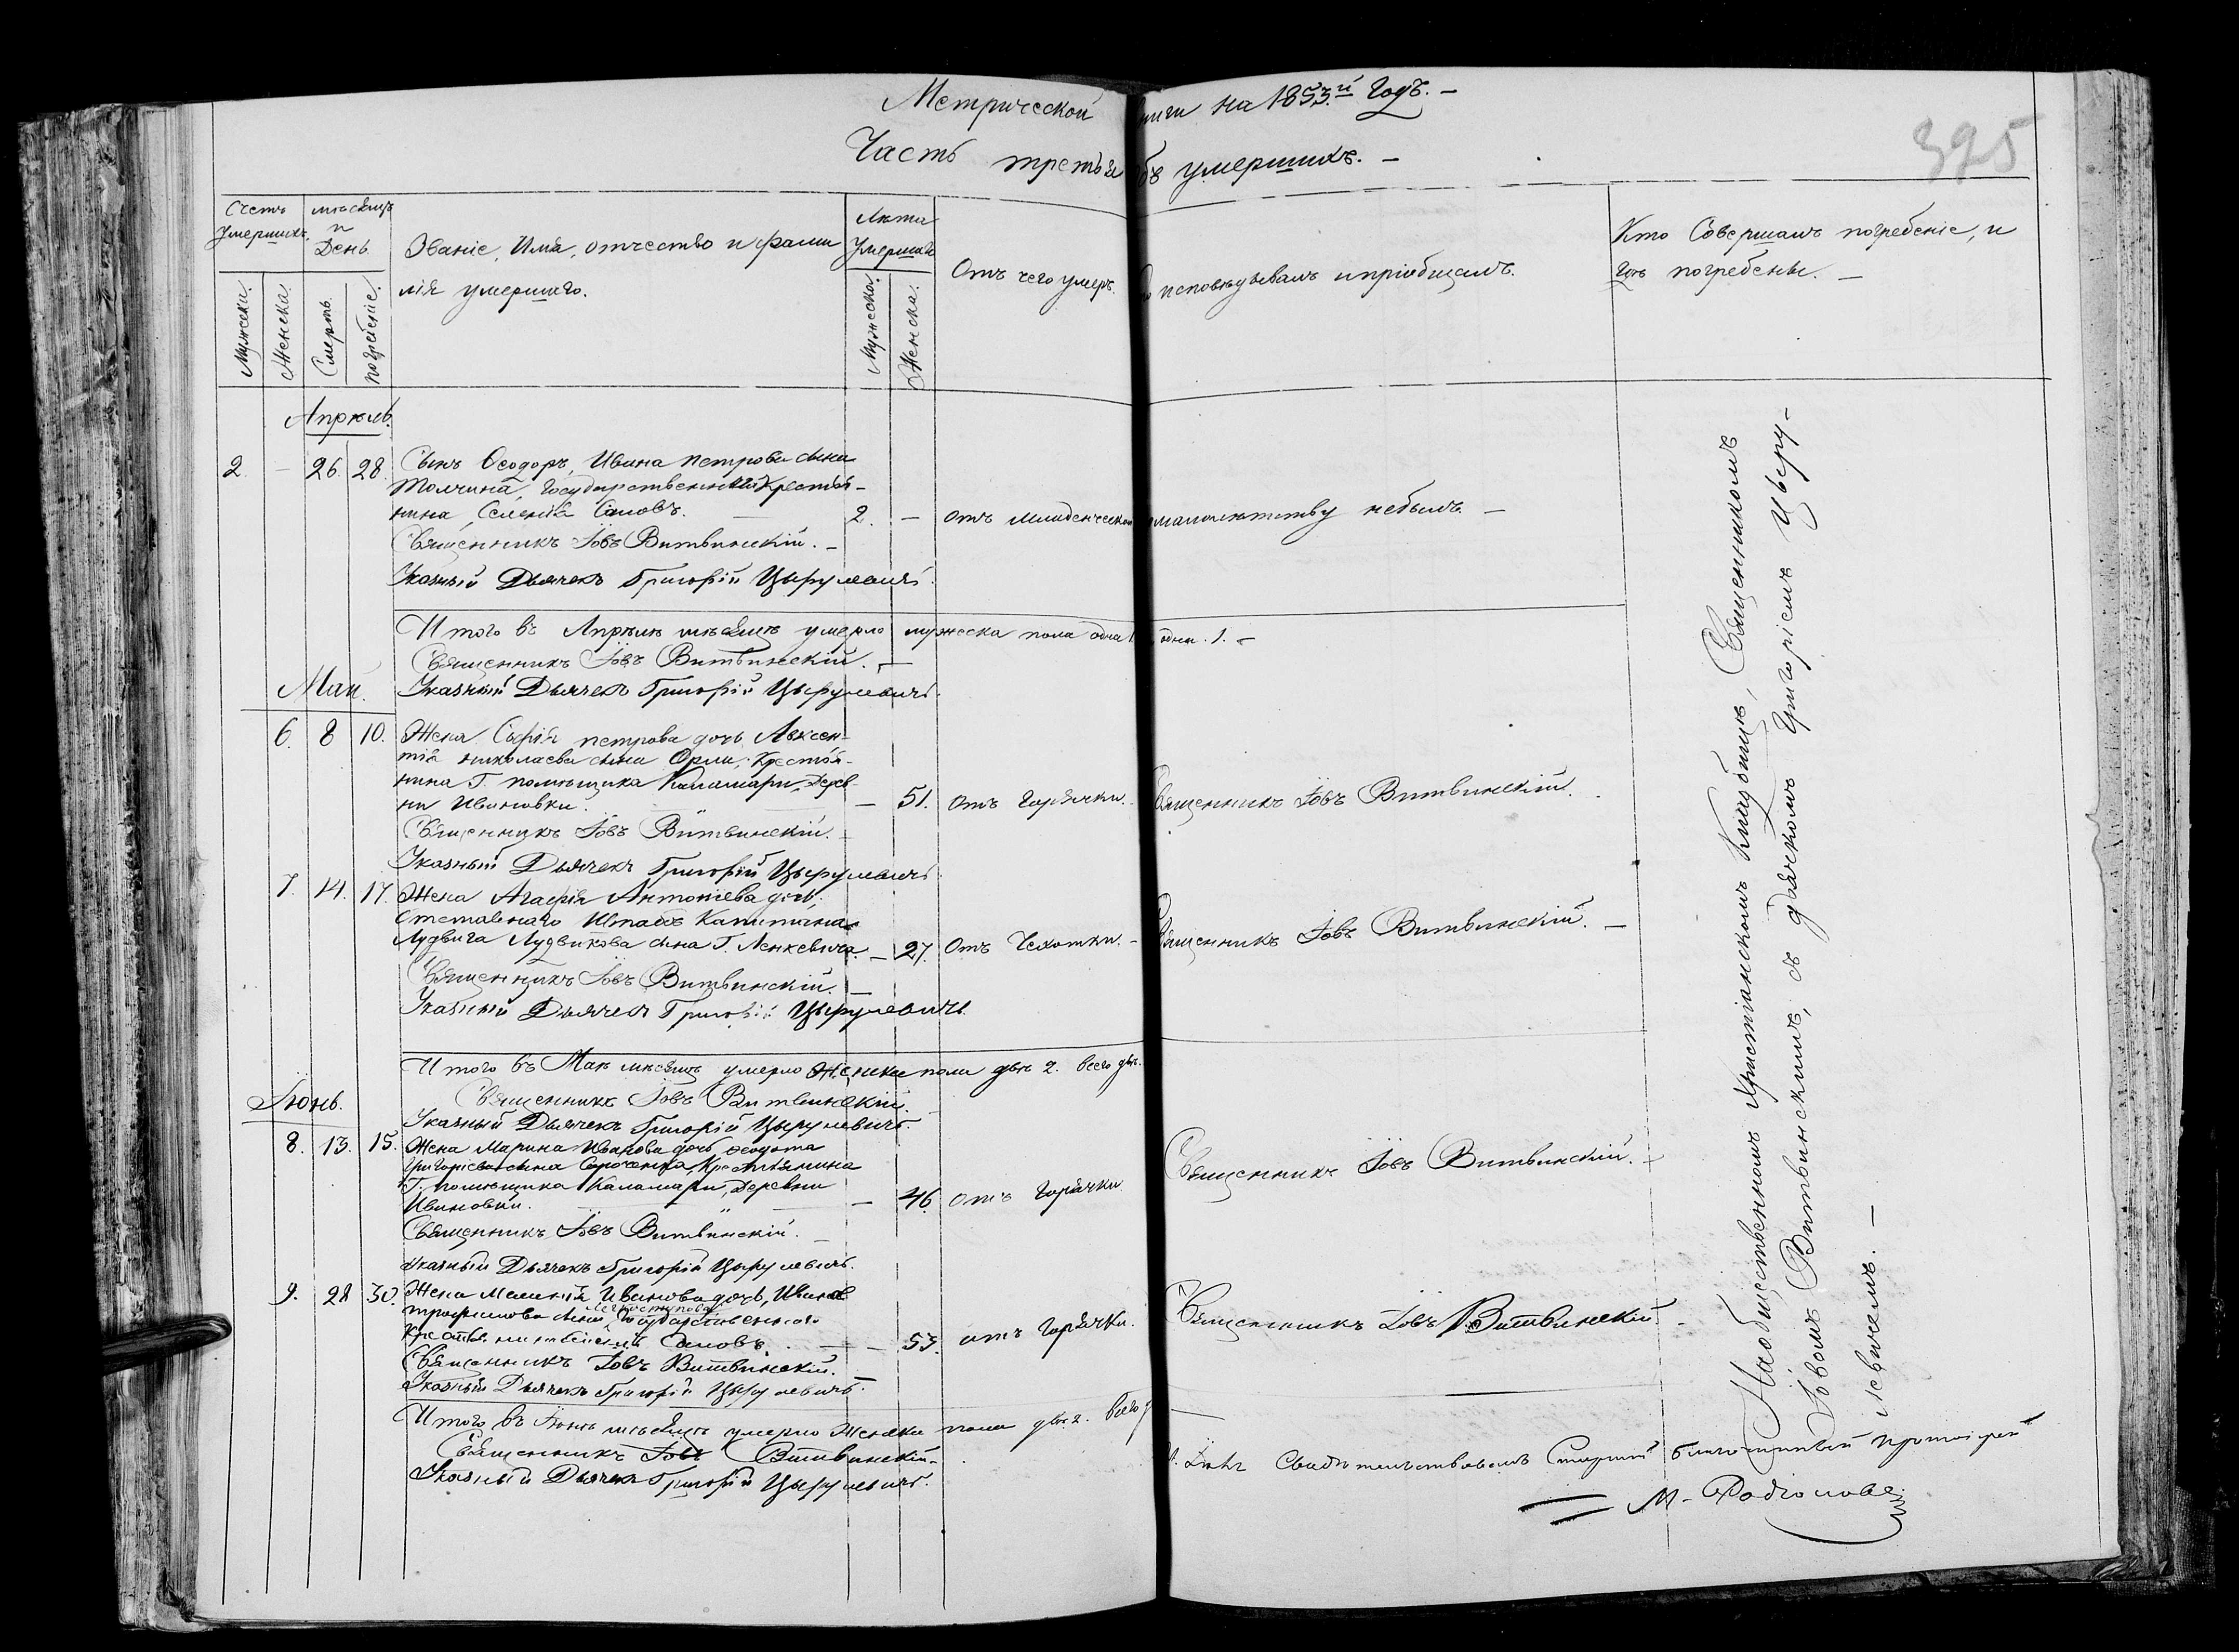 Метрической книги на 1853й Годъ. –
Часть третья объ умершихъ. –
395
Счетъ умершихъ
мѣсяцъ и День
Званіе, Имя, отчество и фами
лія умершаго.
Лѣта умершаго
Отъ чего умеръ.
исповѣдывалъ и пріобщалъ.
Кто Совершалъ погребеніе, и
гдѣ погребены. –
Мужеска.
Женска.
Смерть
погребеніе.
Мужеска.
Женска.
Апрѣль.
2 – 26. 28. Сынъ Ѳеодоръ, Ивана петрова сына
Толчина, Государственнаго Крестья-
нина, Селенія Саловъ. 2. – отъ младенческой малолѣтству небылъ. –
Священникъ Іовъ Витвинскій. –
Указный Дьячекъ Григорій Цырулевичъ.
Итого въ Апрѣлѣ мѣсяцѣ умерло мужеска пола одна 1. одна. 1. –
Священникъ Іовъ Витвинскій. –
Май. Указный Дьячекъ Григорій Цырулевичъ.
6. 8 10. Жена Софія петрова дочь Авксен-
тія николаева сына Орли, Крестья-
нина Г. помѣщика Каламари, Дерев-
ни Ивановки. – 51. отъ Горячки. Священникъ Іовъ Витвинскій.
Священникъ Іовъ Витвинскій. –
Указный Дьячекъ Григорій Цырулевичъ
7. 14. 17. Жена Агафія Антоніева дочь,
Отставнаго Штабъ Капитана
Лудвига Лудвикова сына Г. Ленкевича. – 27. Отъ Чехотки. – Священникъ Іовъ Витвинскій. –
Священникъ Іовъ Витвинскій. –
Указный Дьячекъ Григорій Цырулевичъ.
Итого въ Маѣ мѣсяцѣ умерло Женска пола двѣ 2. всего двѣ.
Іюнь. Священникъ Іовъ Витвинскій. –
Указный Дьячекъ Григорій Цырулевичъ.
8. 13. 15. Жена Марина Иванова дочь, Ѳеодота
Григоріева сына Сороченка, Крестьянина
Г. помѣщика Каламари, Деревни
Ивановки. – 46 отъ Горячки Священникъ Іовъ Витвинскій. –
Священникъ Іовъ Витвинскій. –
Указный Дьячекъ Григорій Цырулевичъ.
9. 28 30. Жена Меланія Иванова дочь, Ивана
трофимова сына, Государственнаго
Саловъ. – 53. отъ Горячки. Священникъ Іовъ Витвинскій. –
Священникъ Іовъ Витвинскій.
Указный Дьячекъ Григорій Цырулевичъ.
Итого въ Іюнѣ мѣсяцѣ умерло Женска пола двѣ 2. Всего
Священникъ Іовъ Витвинскій. –
Указный Дьячекъ Григорій Цырулевичъ.
На общественномъ Христіанскомъ Кладбищѣ, Священникомъ
Іовомъ Витвинскимъ, съ дьячкомъ Григоріемъ Цыру-
левичемъ. –
Свидѣтельствовалъ Старшій благочинный протоіерей
М. Родіоновъ